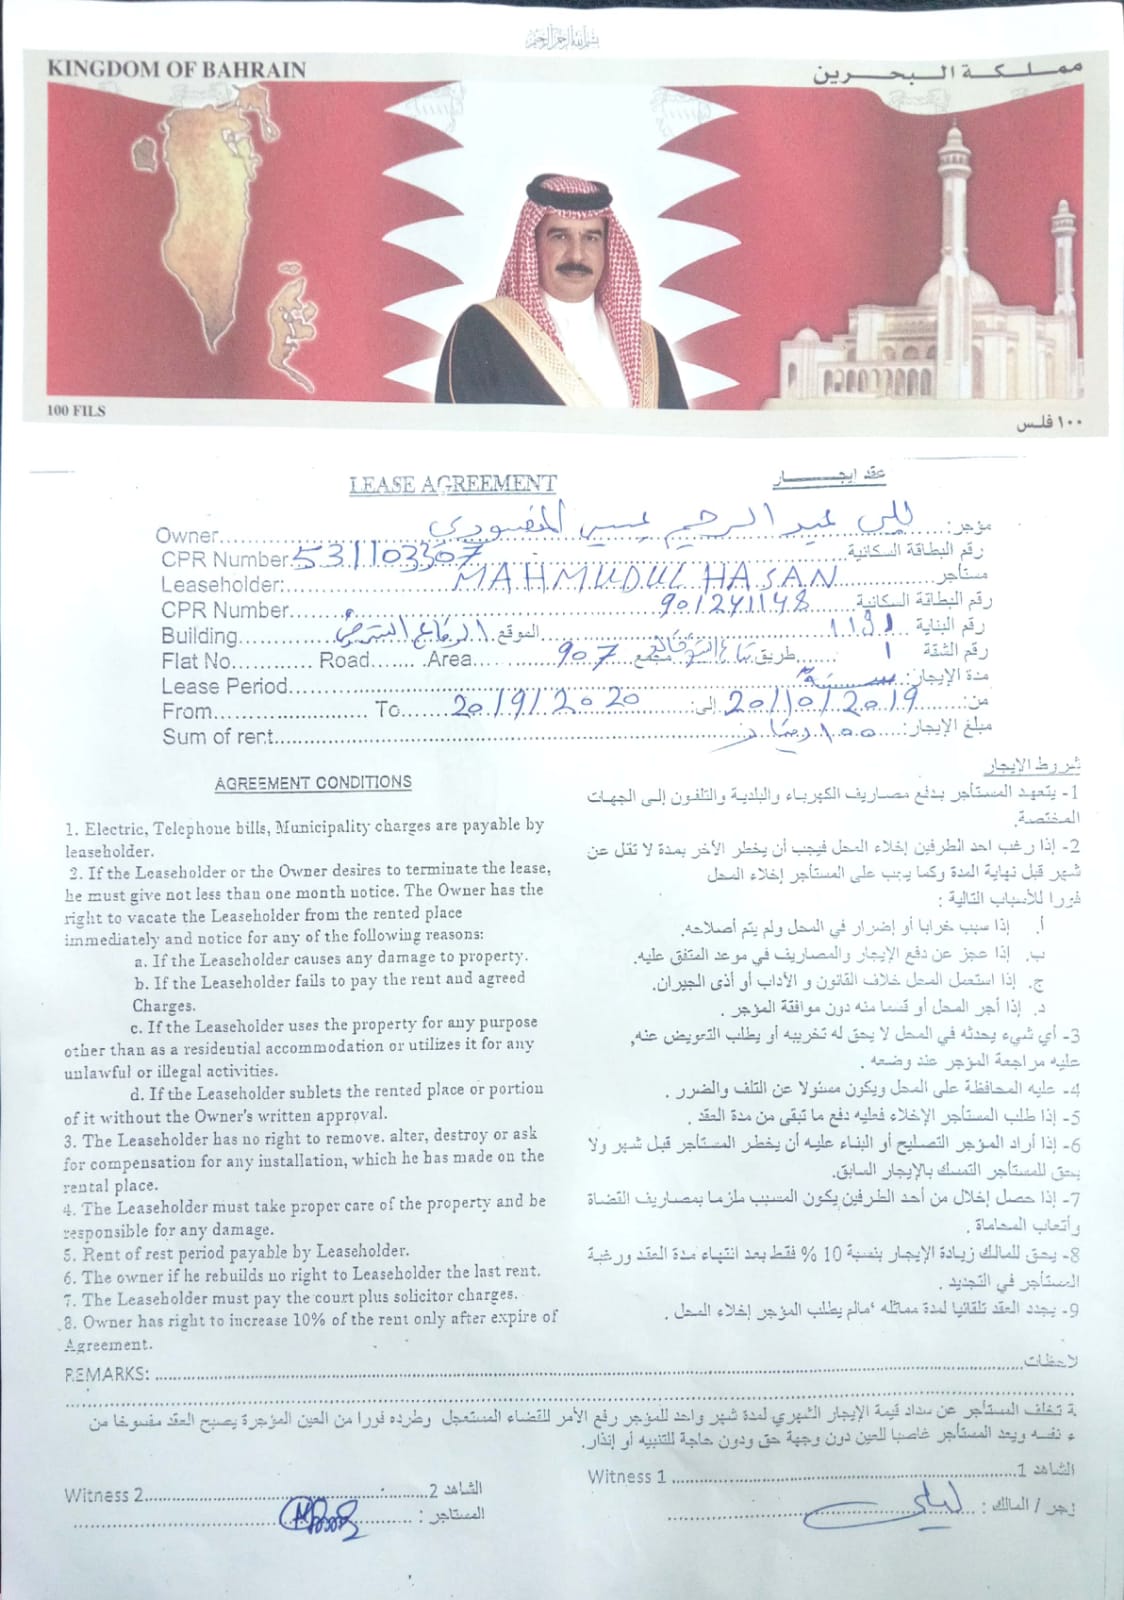 بسم الله الرحمن الرحيم
KINGDOM OF BAHRAIN
مملكة البحرين
100 FILS
١٠٠ فلس
LEASE AGREEMENT
عقد إيجار
Owner عبد الرحيم عيسى المنصوري مؤجر:
CPR Number 531103307 رقم البطاقة السكانية
Leaseholder: MAHMUDUL HASAN مستأجر
CPR Number 901241148 رقم البطاقة السكانية
Building الموقع الرفاع الشرقي رقم البناية 1191
Flat No. Road Area 907 مجمع طريق 1 رقم الشقة
Lease Period سنة مدة الإيجار:
From To 20/9/2020 إلى: 20/10/2019 من:
Sum of rent ١٠٠ دينار مبلغ الإيجار:
AGREEMENT CONDITIONS
1. Electric, Telephone bills, Municipality charges are payable by
leaseholder.
2. If the Leaseholder or the Owner desires to terminate the lease,
he must give not less than one month notice. The Owner has the
right to vacate the Leaseholder from the rented place
immediately and notice for any of the following reasons:
a. If the Leaseholder causes any damage to property.
b. If the Leaseholder fails to pay the rent and agreed
Charges.
c. If the Leaseholder uses the property for any purpose
other than as a residential accommodation or utilizes it for any
unlawful or illegal activities.
d. If the Leaseholder sublets the rented place or portion
of it without the Owner's written approval.
3. The Leaseholder has no right to remove. alter, destroy or ask
for compensation for any installation, which he has made on the
rental place.
4. The Leaseholder must take proper care of the property and be
responsible for any damage.
5. Rent of rest period payable by Leaseholder.
6. The owner if he rebuilds no right to Leaseholder the last rent.
7. The Leaseholder must pay the court plus solicitor charges.
8. Owner has right to increase 10% of the rent only after expire of
Agreement.
شروط الإيجار
1- يتعهد المستأجر بدفع مصاريف الكهرباء والبلدية والتلفون إلى الجهات
المختصة.
2- إذا رغب احد الطرفين إخلاء المحل فيجب أن يخطر الأخر بمدة لا تقل عن
شهر قبل نهاية المدة وكما يجب على المستأجر إخلاء المحل
فورا للأسباب التالية :
أ. إذا سبب خرابا أو إضرار في المحل ولم يتم أصلاحه.
ب. إذا عجز عن دفع الإيجار والمصاريف في موعد المتفق عليه.
ج. إذا استعمل المحل خلاف القانون و الأداب أو أذى الجيران.
د. إذا أجر المحل أو قسما منه دون موافقة المؤجر .
3- أي شيء يحدثه في المحل لا يحق له تخريبه أو يطلب التعويض عنه,
عليه مراجعة المؤجر عند وضعه .
4- عليه المحافظة على المحل ويكون مسئولا عن التلف والضرر .
5- إذا طلب المستأجر الإخلاء فعليه دفع ما تبقى من مدة العقد .
6- إذا أراد المؤجر التصليح أو البناء عليه أن يخطر المستأجر قبل شهر ولا
يحق للمستأجر التمسك بالإيجار السابق.
7- إذا حصل إخلال من أحد الطرفين يكون المسبب ملزما بمصاريف القضاة
وأتعاب المحاماة .
8- يحق للمالك زيادة الإيجار بنسبة 10 % فقط بعد انتهاء مدة العقد ورغبة
المستأجر في التجديد .
9- يجدد العقد تلقائيا لمدة مماثله ،مالم يطلب المؤجر إخلاء المحل .
REMARKS: لاحظات
ة تخلف المستأجر عن سداد قيمة الإيجار الشهري لمدة شهر واحد للمؤجر رفع الأمر للقضاء المستعجل وطرده فورا من العين المؤجرة يصبح العقد مفسوخا من
ء نفسه ويعد المستأجر غاصبا للعين دون وجهة حق ودون حاجة للتنبيه أو إنذار.
Witness 1 الشاهد 1
Witness 2 الشاهد 2
جر / المالك : ليلى
المستاجر :